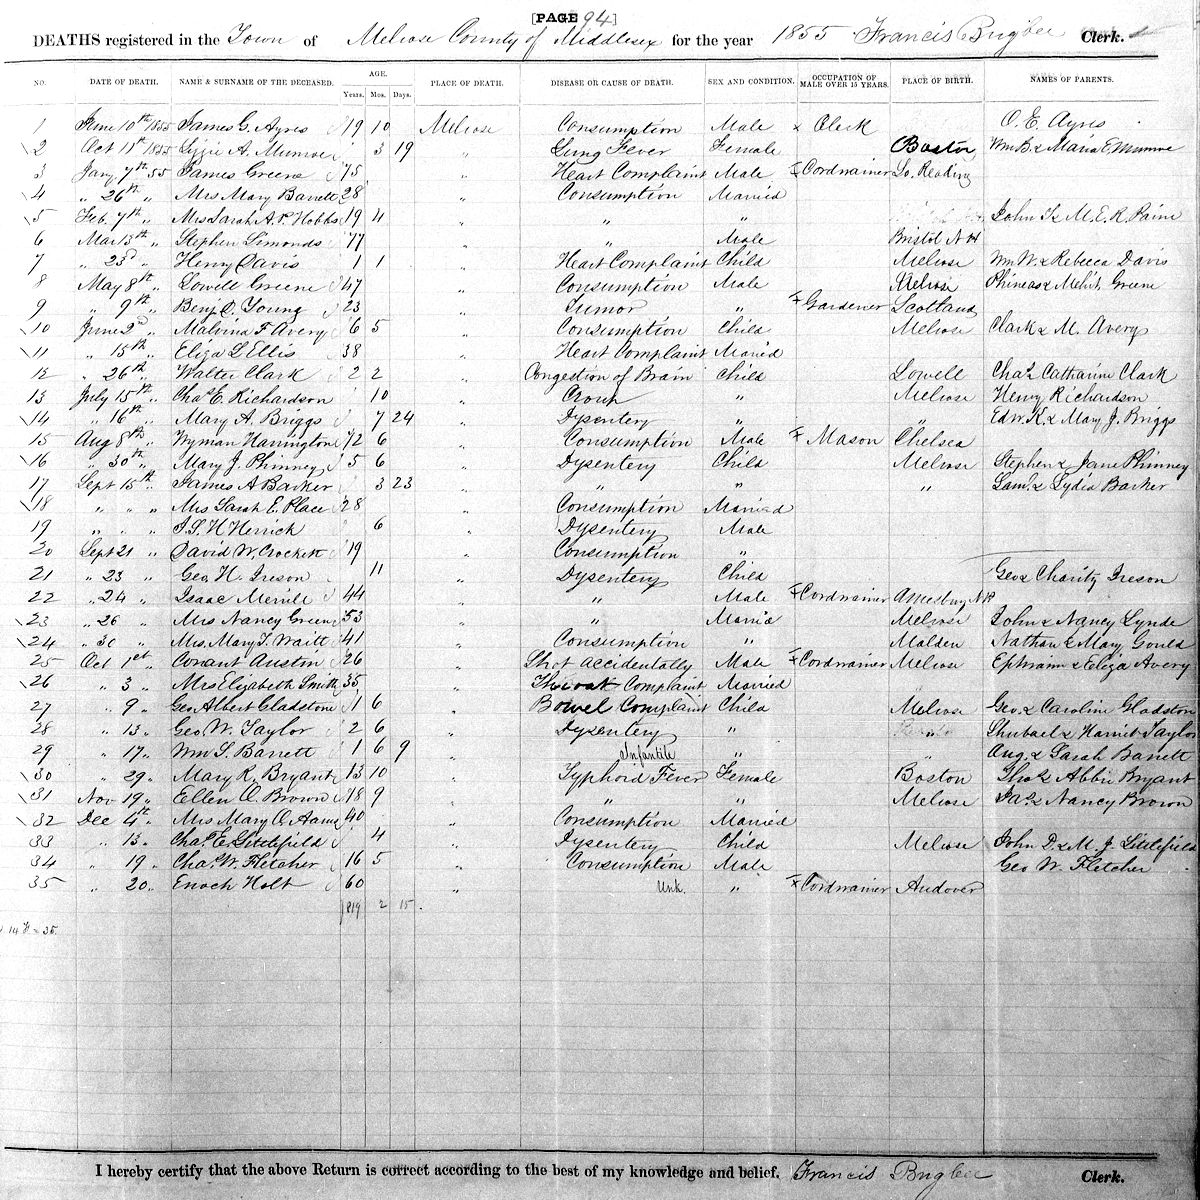 [PAGE 94]
DEATHS registered in the Town of Melrose County of Middlesex for the year 1855 Francis Bugbee Clerk.
NO. DATE OF DEATH. NAME & SURNAME OF THE DECEASED. AGE. Years. Mos. Days. PLACE OF DEATH. DISEASE OR CAUSE OF DEATH. SEX AND CONDITION. OCCUPATION OF MALE OVER 15 YEARS. PLACE OF BIRTH. NAMES OF PARENTS.
1 June 10th 1855 James G. Ayres 19 10 Melrose Consumption Male Clerk O. E. Ayres
2 Oct 11th 1855 Lizzie A. Munroe 3 19 " Lung Fever Female Boston Wm B. & Maria E. Munroe
3 Jany 7th 55 James Greene 75 " Heart Complaint Male Cordwainer So. Reading
4 " 26th " Mrs Mary Barrett 28 " Consumption Married
5 Feb. 7th " Mrs Sarah A. P. Hobbs 19 4 " " " John T. & M. E. R. Paine
6 Mar 13th " Stephen Simonds 77 " " Male Bristol N H
7 " 23d " Henry Davis 1 1 " Heart Complaint Child Melrose Wm W. & Rebecca Davis
8 May 8th " Lowell Greene 47 " Consumption Male Melrose Phineas & Mehit. Greene
9 " 9th " Benj. O. Young 23 " Tumor " Gardener Scotland
10 June 2d " Malvina F. Avery 6 5 " Consumption Child Melrose Clark & M. Avery
11 " 15th " Eliza L Ellis 38 " Heart Complaint Married
12 " 26th " Walter Clark 2 2 " Congestion of Brain Child Lowell Chas. & Catharine Clark
13 July 15th " Chas E. Richardson 10 " Croup " Melrose Henry Richardson
14 " 16th " Mary A. Briggs 7 24 " Dysentery " " Edw. K. & Mary J. Briggs
15 Aug 8th " Wyman Harrington 72 6 " Consumption Male Mason Chelsea
16 " 30th " Mary J. Phinney 5 6 " Dysentery Child Melrose Stephen & Jane Phinney
17 Sept 15th " James A Barker 3 23 " " " " Saml. & Lydia Barker
18 " " " Mrs Sarah E. Place 28 " Consumption Married
19 " " " H Herrick 6 " Dysentery Male
20 Sept 21 " David W. Crockett 19 " Consumption "
21 " 23 " Geo. H. Ireson 11 " Dysentery Child Geo & Charity Ireson
22 " 24 " Isaac Merrill 44 " " Male Cordwainer Amesbury
23 " 26 " Mrs Nancy Green 53 " " Married Melrose John & Nancy Lynde
24 " 30 " Mrs. Mary T. Waitt 41 " Consumption " Malden Nathan & Mary Gould
25 Oct 1st " Conant Austin 26 " Shot accidentally Male Cordwainer Melrose Ephraim & Eliza Avery
26 " 3 " Mrs Elizabeth Smith 35 " Throat Complaint Married
27 " 9 " Geo Albert Gladstone 1 6 " Bowel Complaint Child Melrose Geo. & Caroline Gladston
28 " 13 " Geo W. Taylor 2 6 " Dysentery " " Shubael & Harriet Taylor
29 " 17 " Wm S. Barrett 1 6 9 " Infantile " " Aug. & Sarah Barrett
30 " 29 " Mary R. Bryant 13 10 " Typhoid Fever Female Boston Thos & Abbie Bryant
31 Nov 19 " Ellen O. Brown 18 9 " " " Melrose Jas. & Nancy Brown
32 Dec 4th " Mrs Mary O. 40 " Consumption Married
33 " 13 " Chas. E. Littlefield 4 " Dysentery Child Melrose John D. & M. J. Littlefield
34 " 19 " Chas. W. Fletcher 16 5 " Consumption Male Geo W. Fletcher
35 " 20 " Enoch Holt 60 " Unk. " Cordwainer Andover
819 2 15
I hereby certify that the above Return is correct according to the best of my knowledge and belief. Francis Bugbee Clerk.